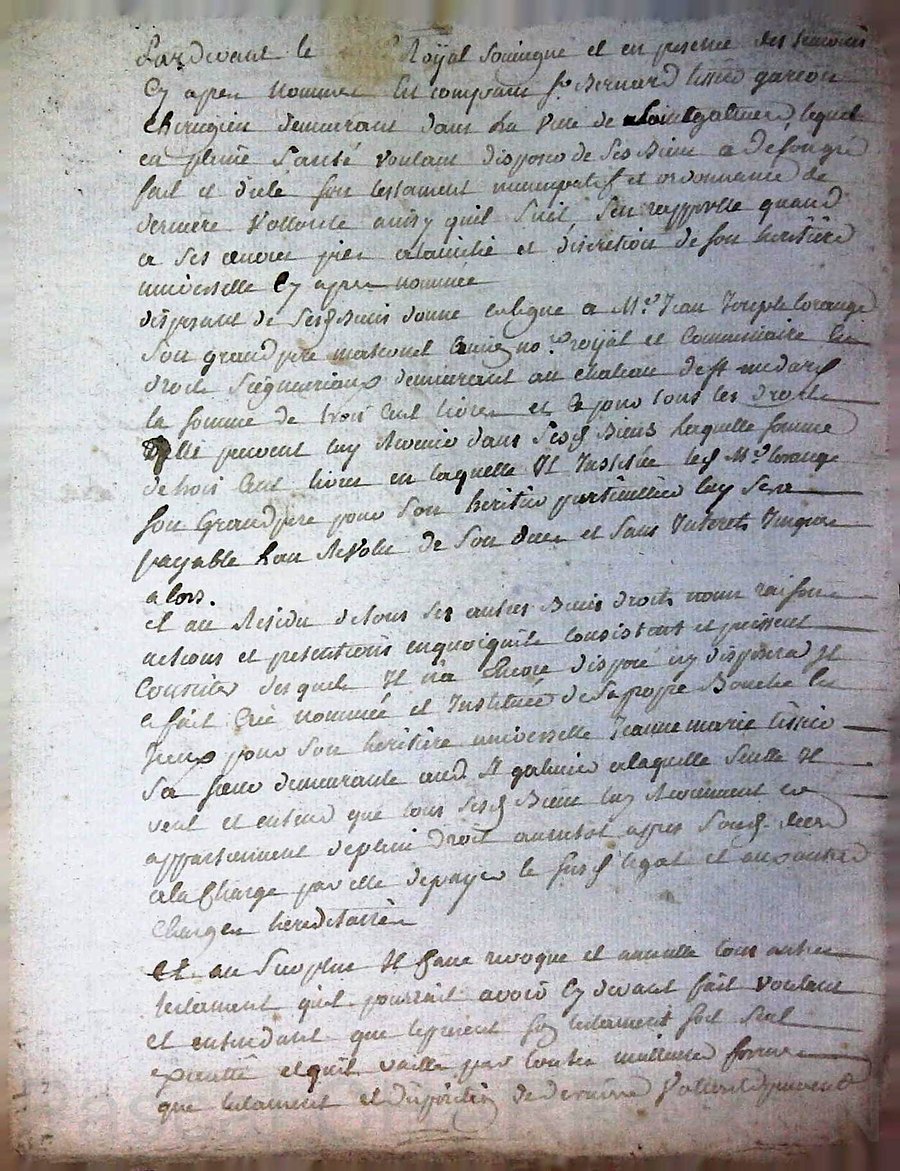 Pardevant le Royal Soussigné et en presence des temoins
Cy apres Nommes Est comparu Sr Bernard tissier garcon
chirugien demeurant dans la Ville de Saintgalmier lequel
en pleine Santé voulant disposer de Ses Biens a de son gré
fait et dicté son testament noncupatif et ordonnance de
derniere Vollonté ainsy quil Suit Sen rapporte quand
a Ses œuvres pies alamitié et discretion de son heritiere
universelle Cy apres nommee
disposant de Sesd Biens donne et legue a Mre Jean Joseph lorange
Son grand pere maternel no.re royal et Commissaire en
droit Seigneuriaux demeurant au chateau de St medard
la somme de trois Cent livres et ce pour tous les droits
quil peuvent luy Revenir dans Sesd Biens laquelle somme
de trois Cent livres en laquelle Il Institue led Mre lorange
son Grand pere pour Son heritier particullier luy Sera
payable Lan Revolu de Son deces et Sans Interets Jusque
alors.
Et au Residu de tous Ses autres Biens droits noms raisons
actions et pretentions en quoiquils consistent et puissent
Consister desquels Il na Encore disposé ny disposera Il
a fait Créé nommée et Instituée de Sa propre Bouche
pour Son heritiere universelle Jeanne marie tissier
Sa sœur demeurante aud St galmier alaquelle Seulle Il
veut et entend que tous Sesd Biens luy Reviennent et
appartiennent deplein droit aussitot apres Sond deces
ala Charge par elle depayer le susd legat et aux autres
charges hereditaires
Et au Surplus Il Casse revoque et annulle tous autres
testament quil pourrait avoir Cy devant fait voulant
et entendant que le present Sy testament soit Seul
executté et quil vaille par toutes meilleures formes
que testament et disposition de derniere Vollonté peuvent